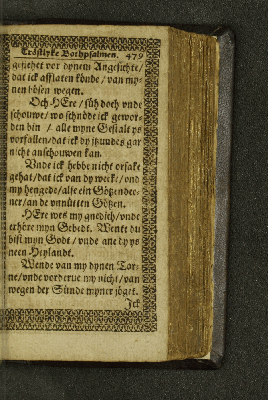 Tröstlyke Bothpsalmen. 479
gesichet vor dynem Angesichte/
dat ick afflaten könde / van my-
nen bösen wegen.
Och HEre / süh doch vnde
schouwe/ wo schnöde ick gewor-
den bin / alle myne Gestalt ys
vorfallen/dat ick dy jtzundes gar
nicht anschouwen kan.
Vnde ick hebbe nicht orsake
gehat/dat ick van dy weeke/ vnd
my hengede/alse ein Götzendee-
ner/an de vnnütten Götzen.
HEre wes my gnedich/vnde
erhöre myn Gebedt. Wente du
bist myn Godt / vnde ane dy ys
neen Heylandt.
Wende van my dynen Tor-
ne/vnde vorderue my nicht/van
wegen der Sünde myner jöget.
Ick